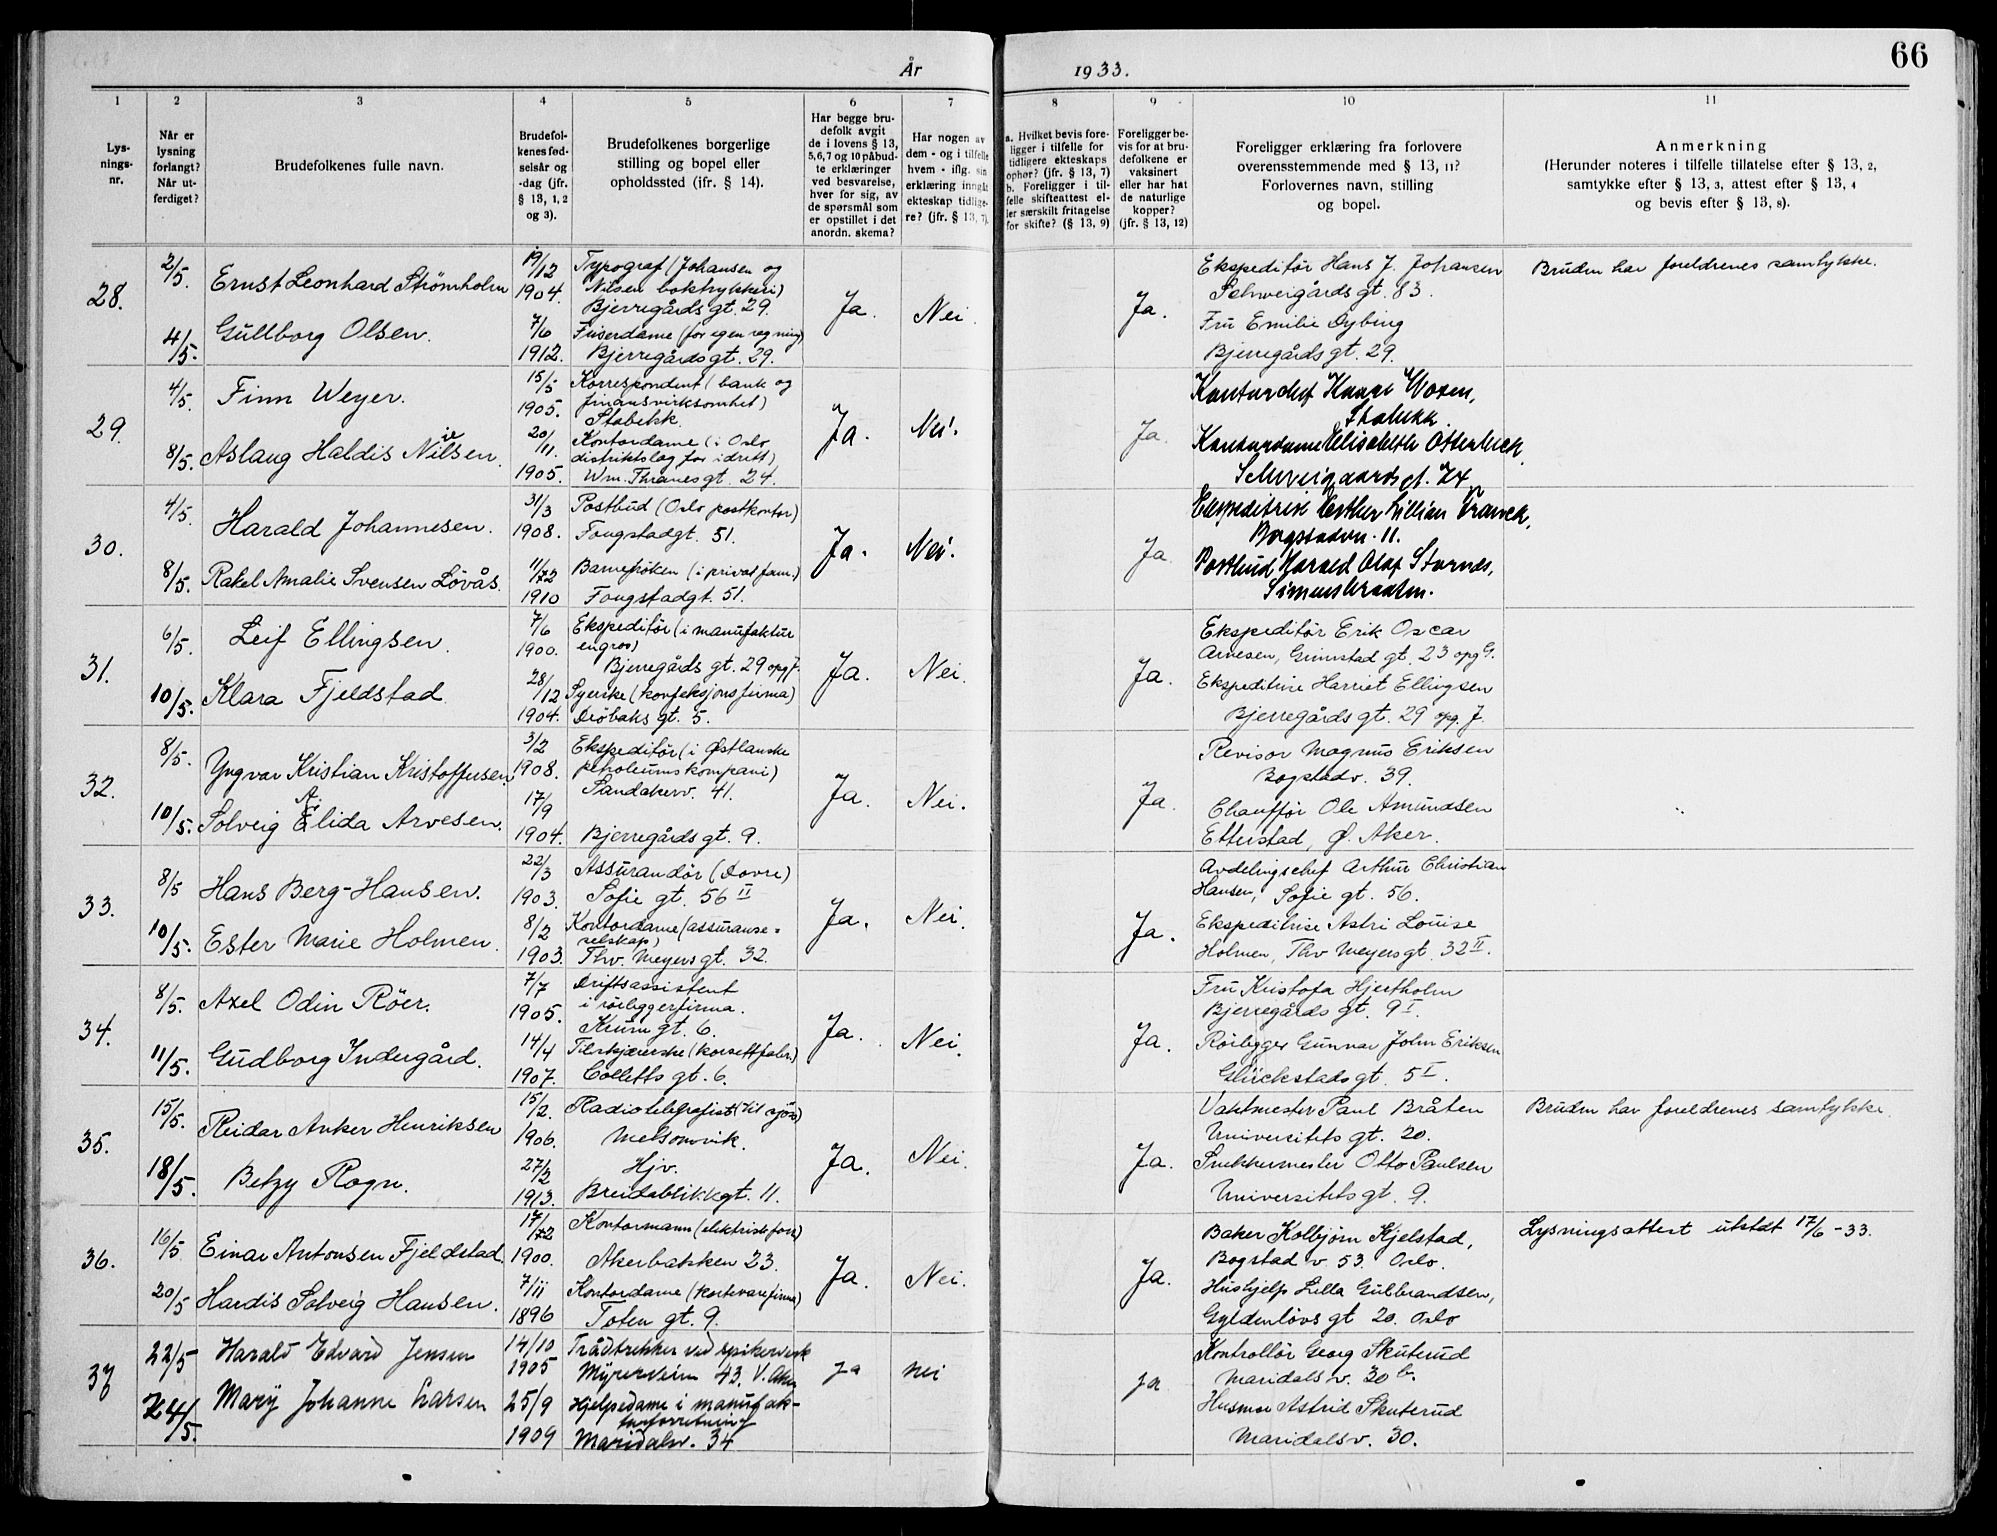 66
År 1933.
1 2 3 4 5 6 7 8 9 10 11
Lys-
nings-
nr.
Når er
lysning
forlangt?
Når ut-
ferdiget?
Brudefolkenes fulle navn.
Brudefol-
kenes fød-
selsår og
-dag (jfr.
§ 13, 1, 2
og 3).
Brudefolkenes borgerlige
stilling og bopel eller
opholdssted (ifr. § 14).
Har begge bru-
defolk avgit
de i lovens § 13,
5,6,7 og 10 påbud-
te erklæringer
ved besvarelse,
hver for sig, av
de spørsmål som
er opstillet i det
anordn. skema?
Har nogen av
dem - og i tilfelle
hvem - iflg. sin
erklæring inngåt
ekteskap tidlige-
re? (jfr. § 13, 7).
a. Hvilket bevis fore-
ligger i tilfelle for
tidligere ekteskaps
ophør? (jfr. § 13, 7)
b. Foreligger i til-
felle skifteattest el-
ler særskilt fritagelse
for skifte? (§ 13, 9)
Foreligger be-
vis for at bru-
defolkene er
vaksinert
eller har hat
de naturlige
kopper?
(jfr. § 13, 12)
Foreligger erklæring fra forlovere
overensstemmende med § 13, 11?
Forlovernes navn, stilling
og bopel.
Anmerkning
(Herunder noteres i tilfelle tillatelse efter § 13, 2,
samtykke efter § 13, 3, attest efter § 13, 4
og bevis efter § 13, 8).
28.
2/5.
4/5.
Ernst Leonhard Strømholm
Gullborg Olsen.
19/12
1904.
7/6
1912.
Typograf (Johansen og
Nilsen boktrykkeri)
Bjerregårds gt. 29.
Friserdame (for egen regning)
Bjerregårds gt. 29.
Ja.
Nei.
Ja.
Ekspeditør Hans J. Johansen
Schweigårds gt. 83.
Fru Emilie Dybing
Bjerregårds gt. 29.
Bruden har foreldrenes samtykke.
29.
4/5.
8/5.
Finn Weyer.
ie
Aslaug Haldis Nilsen.
15/5
1905.
20/11.
1905.
Korrespondent (bank og
finansvirksomhet)
Stabekk.
Kontordame (i Oslo
distriktslag for idrett)
Wm. Thranes gt. 24.
Ja.
Nei.
Ja.
Kontorchef Kaare Woxen,
Stabekk.
Kontordame Elisabeth Otterbeck,
Schweigaards gt. 74
30.
4/5.
8/5.
Harald Johannesen.
Rakel Amalie Svensen Løvås.
31/3
1908.
11/12
1910
Postbud (Oslo postkontor)
Fougstadgt. 51.
Barnefrøken (i privat fam.)
Fougstadgt. 51.
Ja.
Nei.
Ja
Ekspeditrise Esther Lillian Franck,
Bogstadvn. 11.
Postbud Harald Olaf Stornes,
Simensbraaten.
31.
6/5.
10/5.
Leif Ellingsen.
Klara Fjeldstad.
7/6
1900.
28/12
1904.
Ekspeditør (i manufaktur
engros)
Bjerregårds gt. 29 opg J.
Syerske (konfeksjonsfirma)
Drøbaks gt. 5.
Ja.
Nei.
Ja.
Ekspeditør Erik Oscar
Arnesen, Grimstad gt. 23 opg G.
Ekspeditrise Harriet Ellingsen
Bjerregårds gt. 29 opg. J.
32.
8/5.
10/5.
Yngvar Kristian Kristoffersen
A.
Solveig Elida Arvesen.
3/2
1908.
17/9
1904.
Ekspeditør (i Østlanske
petroleumskompani)
Sandakerv. 41.
Bjerregårds gt. 9.
Ja.
Nei.
Ja.
Revisor Magnus Eriksen
Bogstadv. 39.
Chauffør Ole Amundsen
Etterstad, Ø. Aker.
33.
8/5
10/5.
Hans Berg-Hansen.
Ester Marie Holmen.
22/3
1903.
8/2
1903.
Assurandør (Dovre)
Sofie gt. 56 II
Kontordame (assuranse-
selskap)
Thv. Meyers gt. 32.
Ja.
Nei.
Ja.
Avdelingschef Arthur Christian
Hansen, Sofie gt. 56.
Ekspeditrise Astri Louise
Holmen, Thv Meyers gt. 32 II.
34.
8/5.
11/5.
Axel Odin Röer.
Gudborg Indergård.
7/7
1905.
14/4
1907.
Driftsassistent
i rörleggerfirma.
Krum gt. 6.
Tilskjærerske (korsettfabr.)
Colletts gt. 6.
Ja.
Nei.
Ja.
Fru Kristofa Hjertholm
Bjerregårds gt. 9 I.
Rörlegger Gunnar John Eriksen
Glückstads gt. 5 I.
35.
15/5.
18/5.
Reidar Anker Henriksen
Betzy Rogn.
15/2.
1906.
27/2
1913.
Radiotelegrafist (til sjøs)
Melsomvik.
Hjv.
Breidablikkgt. 11.
Ja.
Nei.
Ja.
Vaktmester Paul Bråten
Universitets gt. 20.
Snekkermester Otto Paulsen
Universitets gt. 9.
Bruden har foreldrenes samtykke.
36.
16/5.
20/5
Einar Antonsen Fjeldstad
Hardis Solveig Hansen.
17/12
1900.
7/11
1896
Kontormann
Akerbakken 23.
Kontordame (kortevarefirma)
Toten gt. 9.
Ja.
Nei.
Ja.
Baker Kolbjørn Kjelstad,
Bogstad v. 53. Oslo.
Hushjelp Lilla Gulbrandsen,
Gyldenløvs gt 20. Oslo
Lysningsattest utstdt 17/6-33.
37
22/5
24/5.
Harald Edvard Jensen
Mary Johanne Larsen
14/10
1905
25/9
1909
Trådtrekker ved spikerverk
Myrerveien 43, V. Aker
Hjelpedame i manufak-
turforretning
Maridalsv. 34
Ja
nei
Ja
Kontrollør Georg Skuterud
Maridals v. 30 b.
Husmor Astrid Skuterud
Maridalsv. 30.